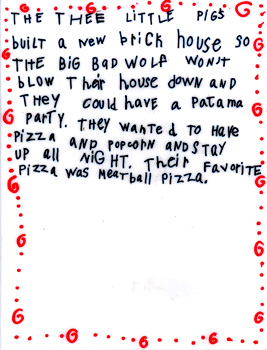 THE THEE LITTLE PIGS
built a new brick house so
THE BIG BAD WOLF WON'T
blow Their house down AND
THEY COULD HAVE A PATAMA
PARTY. THEY WANTED TO HAVE
PIZZA AND POPCORN AND STAY
UP all NIGHT. Their FAVORITE
PIZZA WAS MEATBALL PIZZA.